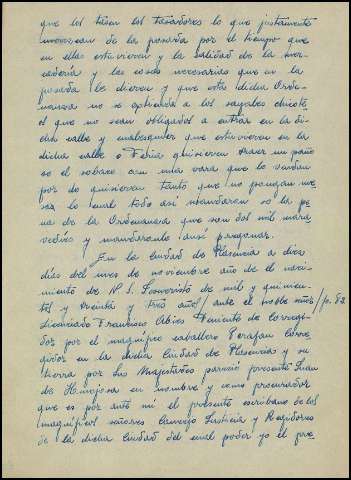 que los tasen los tasadores lo que justamente
merezcan de la posada por el tiempo que
en ellas estuvieren y la calidad de la mer-
cadería y las cosas necesarias que en la
posada le dieren y que esta dicha Orde-
nanza no se aplicada a los sayales
el que no sean obligados a entrar en la di-
cha calle y cualesquier que estuvieren en la
dicha calle o Feria quisieren traer un paño
so el sobaco con una vara que lo vendan
por do quisieren tanto que no pongan me-
sa lo cual todo así mandaron so la pe-
na de la Ordenanza que son dos mil mara-
vedíes y mandáronlo ansí pregonar.
En la Ciudad de Plasencia a diez
días del mes de noviembre año de el naci-
miento de N. S. Jesucristo de mil y quinien-
tos y treinta y tres años / ante el noble señor /p. 82
Licenciado Francisco Teniente de Corregi-
dor por el magnífico caballero Perafan Corre-
gidor en la dicha Ciudad de Plasencia y su
tierra por Sus Majestades pareció presente Juan
de Hinojosa en nombre y como procurador
que es por ante mí el presente escribano de los
magníficos señores Concejo Justicia y Regidores
de la dicha Ciudad del cual poder yo el pre-